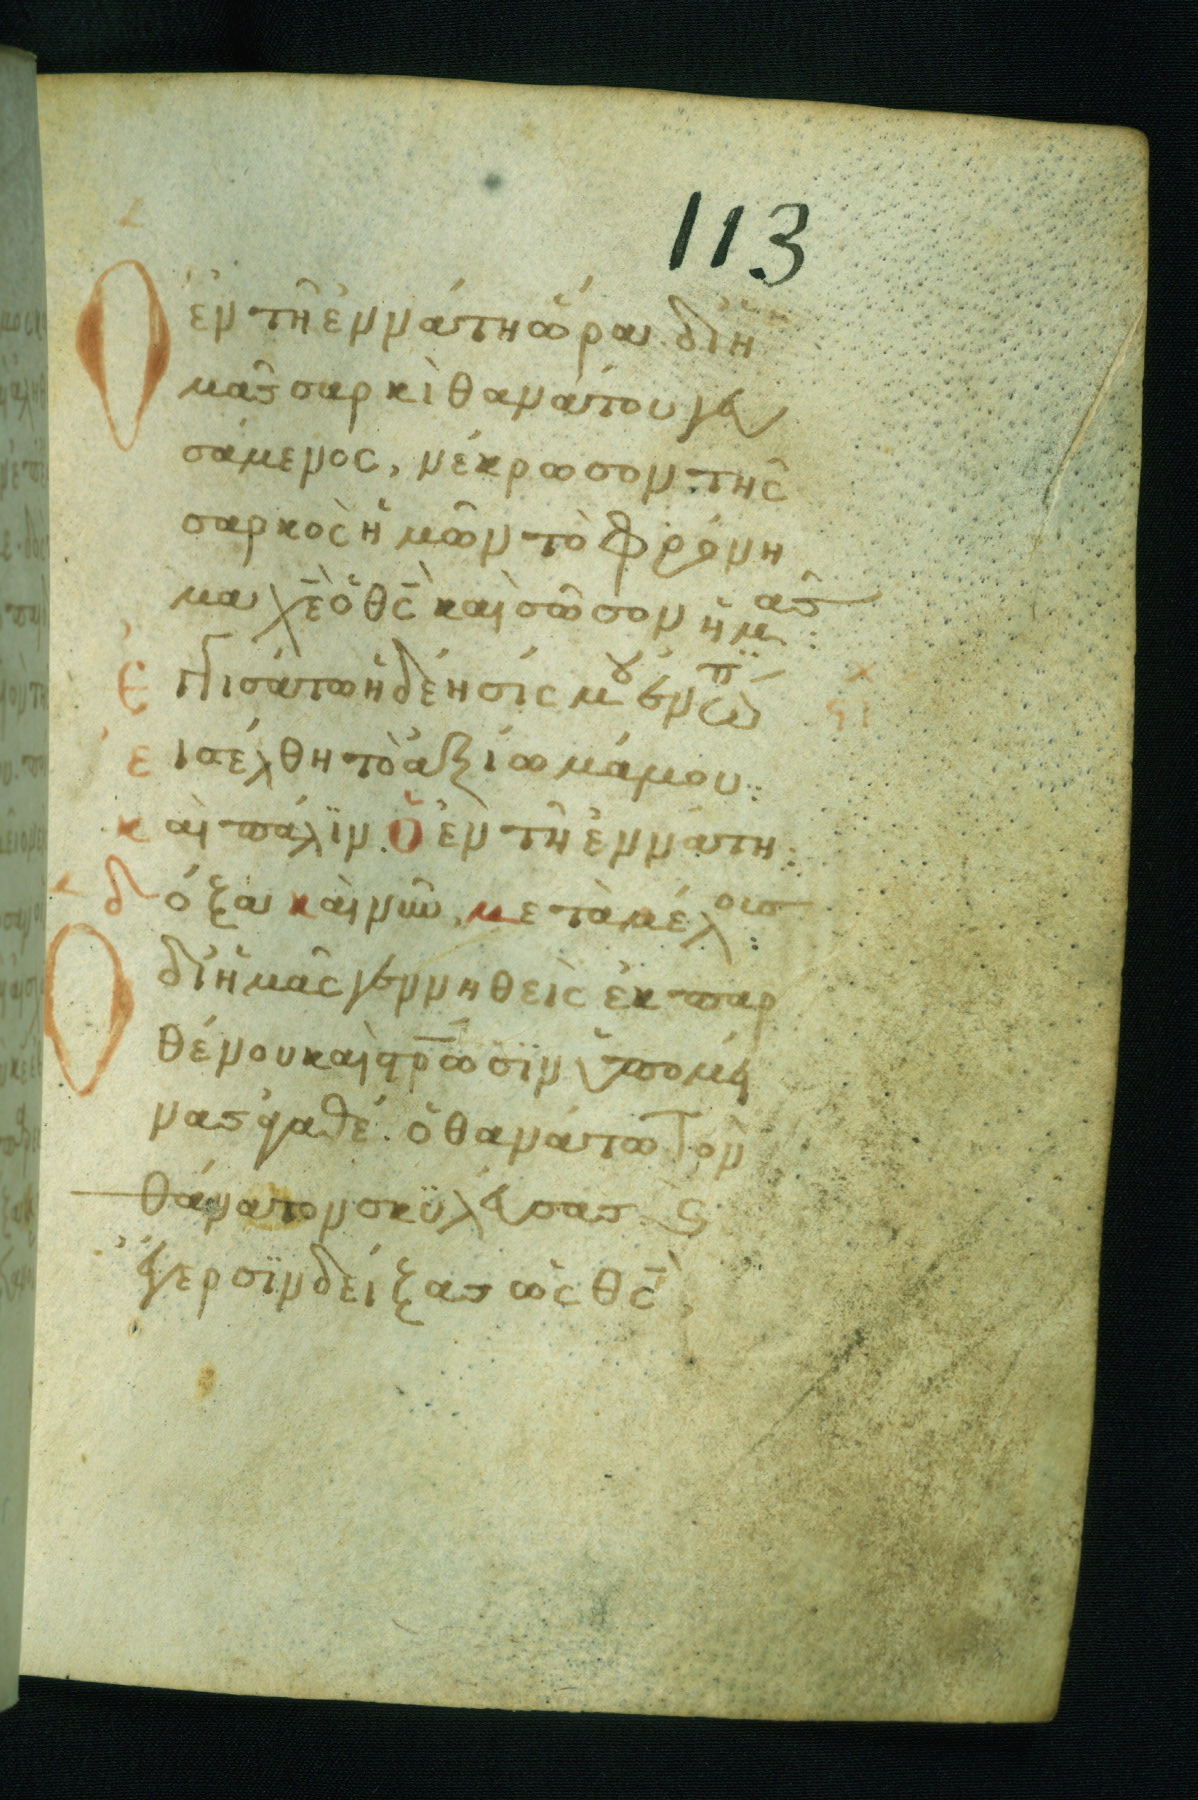 113
Ὁ ἐν τῇ ἐννάτη ὥρα δι ἡ
μᾶς σαρκὶ θανάτου γευ
σάμενος, νέκρωσον τῆς
σαρκὸς ἡμῶν τὸ φρόνη
μα χε ὁ θς καὶ σῶσον ἡμᾶς:
Ἐγγισάτω ἡ δέησίς μου ἐνώπ
Εἰσέλθη τὸ ἀξίωμά μου:
Καὶ πάλϊν. Ὁ ἐν τῆ ἐννάτη:
Δόξα καὶ νῦν, μετὰ μέλους:
Ὁ δι ἡμᾶς γεννηθεὶς ἐκ παρ
θένου καὶ στρωσϊν ὑπομεί
νας ἀγαθέ. ὁ θανάτω τὸν
θάνατον σκϋλεύσας. καὶ
ἔγερσϊν δείξας ὡς θς,